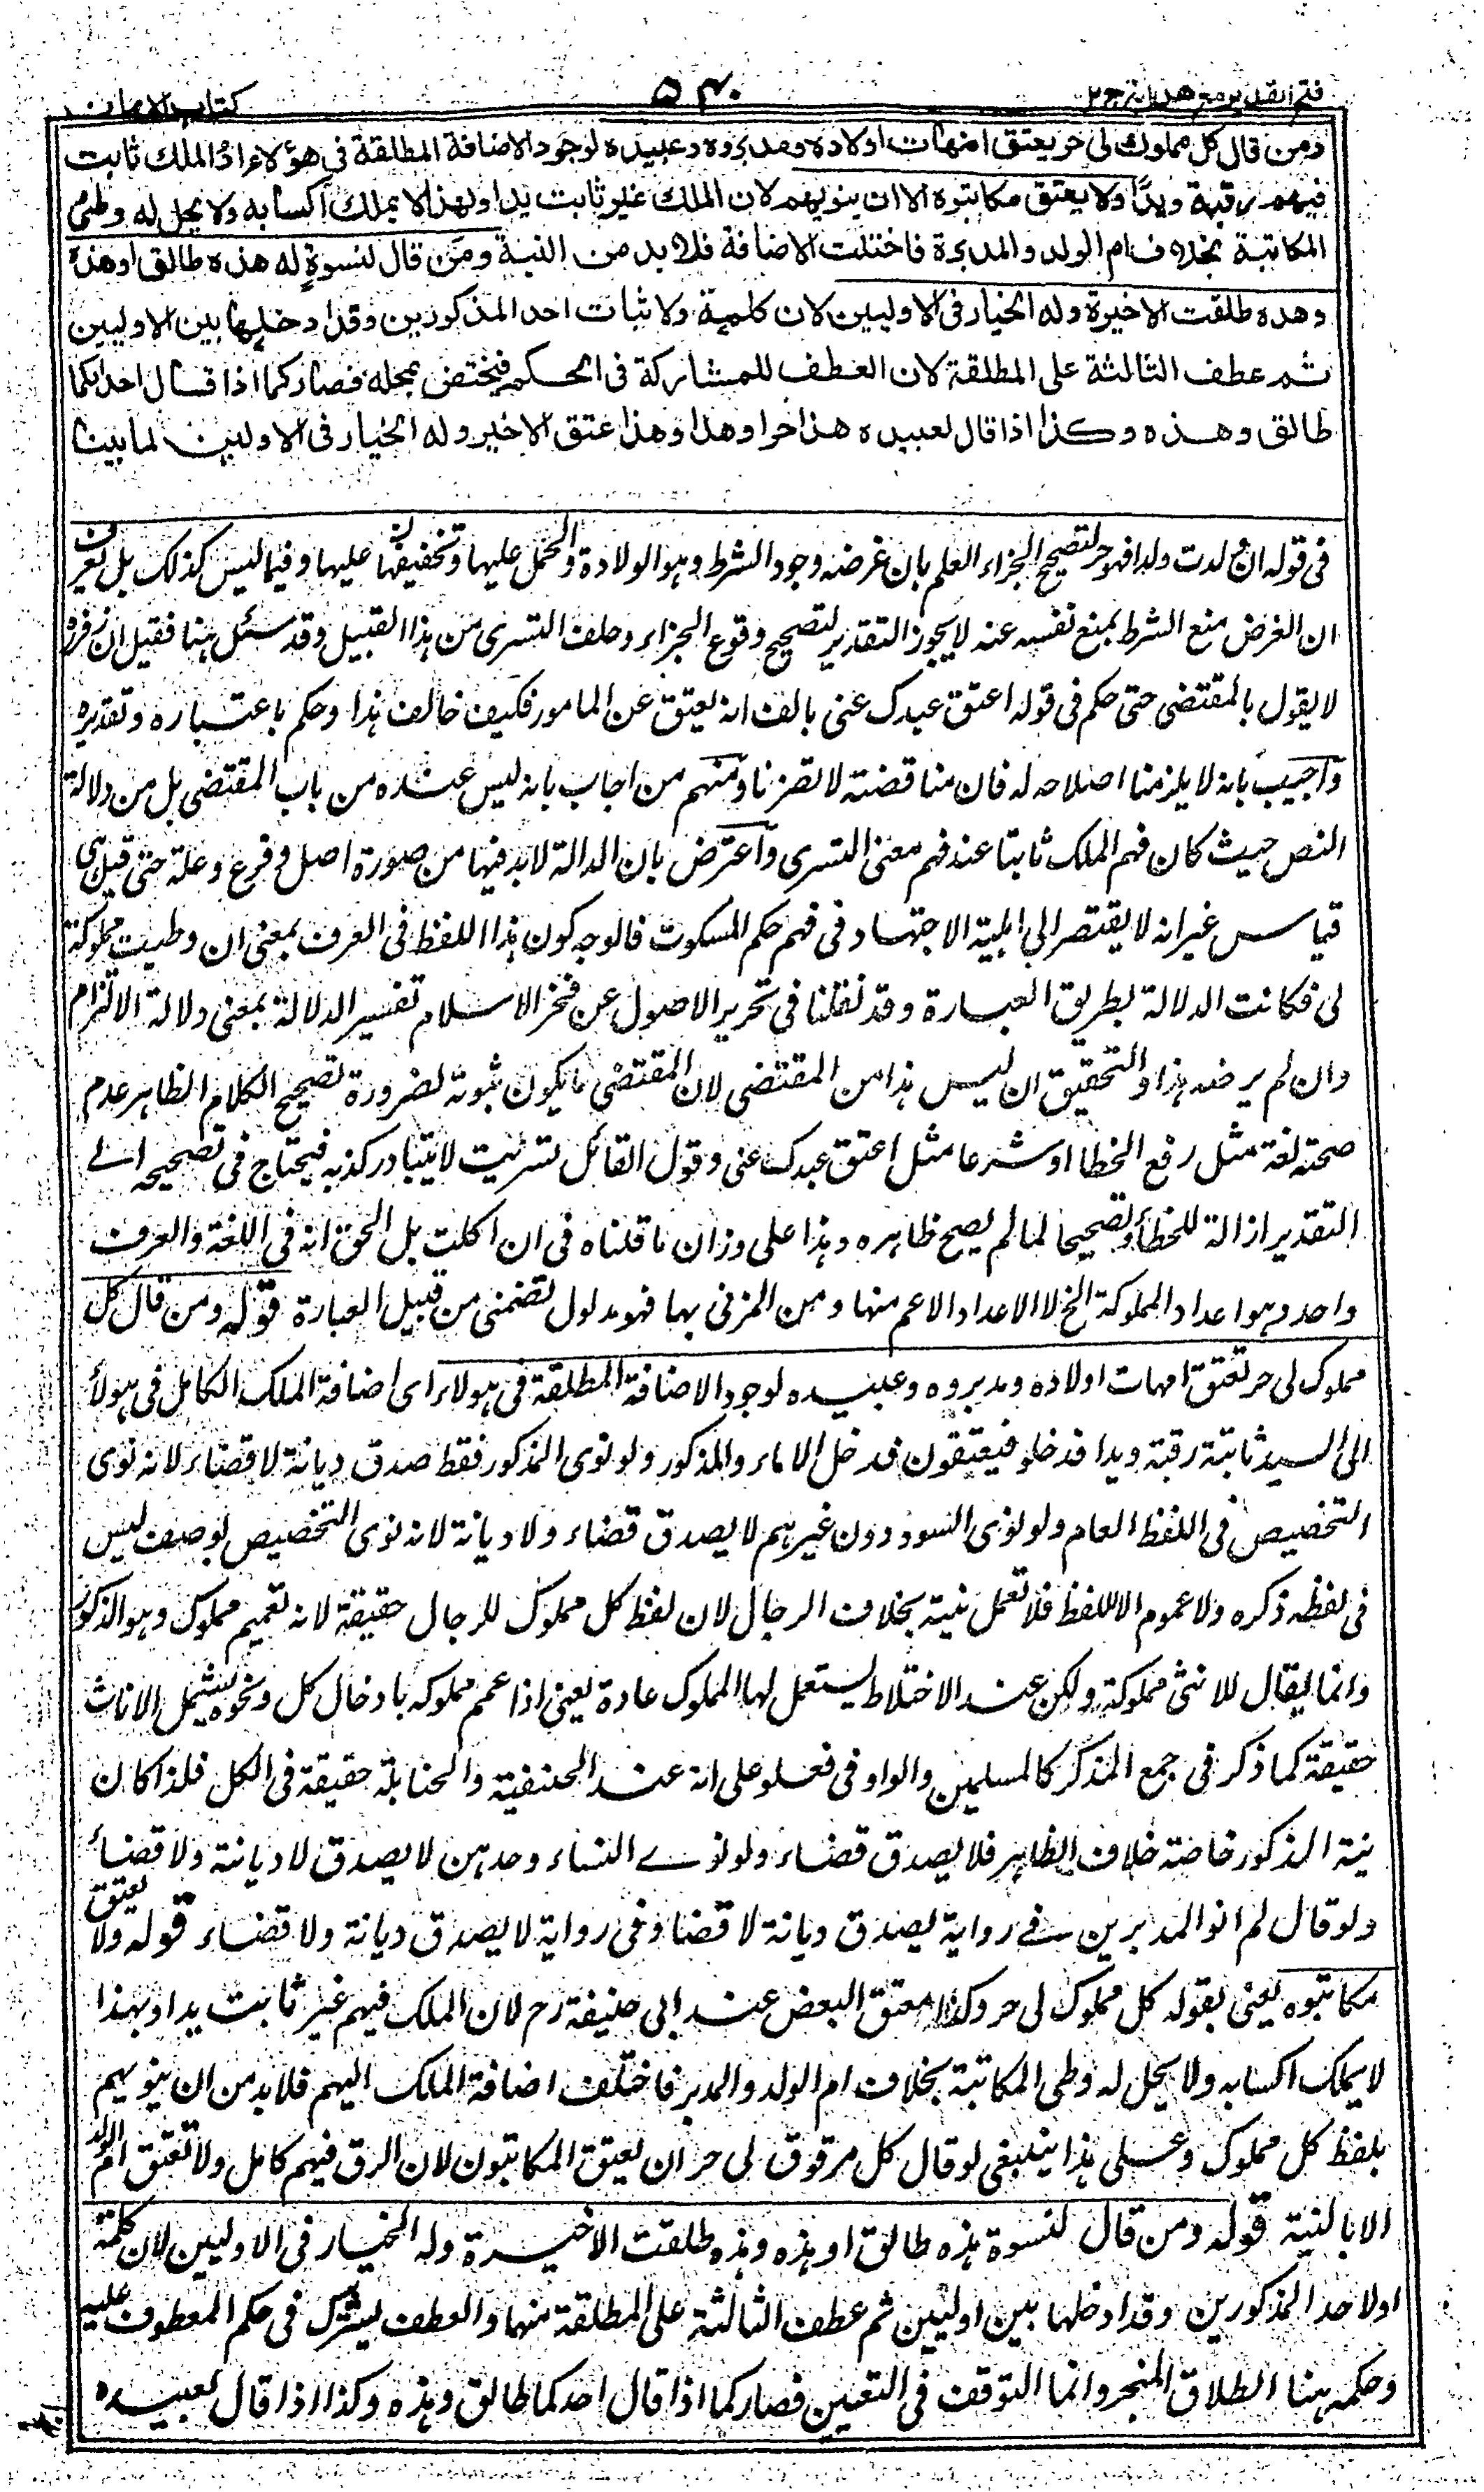 فتح القدير مع هدايه ج٢
٥٤٠
كتاب الايمان
ومن قال كل مملوك لى حر يعتق امهات اولاده ومدبروه وعبيده لوجود الاضافة المطلقة فى هؤلاء اذ الملك ثابت
فيهم رقبة ويدًا ولا يعتق مكاتبوه الا ان ينويهم لان الملك غير ثابت يدا ولهذا لا يملك اكسابه ولا يحل له وطئ
المكاتبة بخلاف ام الولد والمدبرة فاختلت الاضافة فلا بد من النية ومن قال لنسوة له هذه طالق او هذه
وهذه طلقت الاخيرة وله الخيار فى الاوليين لان كلمة او لاثبات احد المذكورين وقد ادخلها بين الاوليين
ثم عطف الثالثة على المطلقة لان العطف للمشاركة فى الحكم فيختص بمحله فصار كما اذا قال احدٰىكما
طالق وهذه وكذا اذا قال لعبيده هذا حر او هذا وهذا عتق الاخير وله الخيار فى الاولين لما بينا
فى قوله ان ولدت ولدا فهو حر لتصحيح الجزاء العلم بان غرضه وجود الشرط وهو الولادة والحمل عليها وتخفيفها عليها وفيما ليس كذلك بل يعرف
ان الغرض منع الشرط بمنع نفسه عنه لا يجوز التقدير لتصحيح وقوع الجزاء وحلف التسرى من هذا القبيل وقد سئل هنا فقيل ان زفر رح
لا يقول بالمقتضى حتى حكم فى قوله اعتق عبدك عنى بالف انه يعتق عن المامور فكيف خالف هذا وحكم باعتباره وتقديره
واجيب بانه لا يلزمنا اصلاحه له فان مناقضته لا تضرنا ومنهم من اجاب بانه ليس عنده من باب المقتضى بل من دلالة
النص حيث كان فهم الملك ثابتا عند فهم معنى التسرى واعترض بان الدلالة لا بد فيها من صورة اصل وفرع وعلة حتى قيل هى
قياس غير انه لا يقتصر الى اهلية الاجتهاد فى فهم حكم المسكوت فالوجه كون هذا اللفظ فى العرف بمعنى ان وطيت مملوكة
لى فكانت الدلالة بطريق العبارة وقد نقلنا فى تحرير الاصول عن فخر الاسلام تفسير الدلالة بمعنى دلالة الالتزام
وان لم يرضه هذا والتحقيق ان ليس هذا من المقتضى لان المقتضى ما يكون ثبوته لضرورة تصحيح الكلام الظاهر عدم
صحته لغة مثل رفع الخطا او شرعا مثل اعتق عبدك عنى وقول القائل تسريت لا يتبادر كذبه فيحتاج فى تصحيحه الے
التقدير ازالة للخطأ وتصحيحا لما لم يصح ظاهره وهذا على وزان ما قلناه فى ان اكلت بل الحق انه فى اللغة والعرف
واحد وهو اعداد المملوكة الخ لا الاعداد الاعم منها ومن المزنى بها فهو مدلول تضمنى من قبيل العبارة قوله ومن قال كل
مملوك لى حر تعتق امهات اولاده ومدبروه وعبيده لوجود الاضافة المطلقة فى هولاء اى اضافة الملك الكامل فى هولاء
الى السيد ثابتة رقبة ويدا فدخلو فيعتقون فدخل الاماء والمذكور ولو نوى المذكور فقط صدق ديانة لا قضاء لانه نوى
التخصيص فى اللفظ العام ولو نوى السود دون غيرهم لا يصدق قضاء ولا ديانة لانه نوى التخصيص بوصف ليس
فى لفظه ذكره ولا عموم الا للفظ فلا تعمل نيته بخلاف الرجال لان لفظ كل مملوك للرجال حقيقة لانه تعميم مملوك وهو الذكور
وانما يقال للانثى مملوكة ولكن عند الاختلاط يستعمل لها المملوك عادة يعنى اذا عمم مملوكه بادخال كل ونحوه يشمل الاناث
حقيقة كما ذكر فى جمع المذكر كالمسلمين والواو فى فعلو على انه عند الحنفية والحنابلة حقيقة فى الكل فلذا كان
نية الذكور خاصة خلاف الظاهر فلا يصدق قضاء ولو نوے النساء وحدهن لا يصدق لا ديانة ولا قضاء
ولو قال لم انو المدبرين فے رواية يصدق ديانة لا قضا وفى رواية لا يصدق ديانة ولا قضاء قوله ولا يعتق
مكاتبوه يعنى بقوله كل مملوك لى حر وكذا معتق البعض عند ابى حنيفة رح لان الملك فيهم غير ثابت يدا وبهذا
لا يملك اكسابه ولا يحل له وطى المكاتبة بخلاف ام الولد والمدبر فاختلف اضافة الملك اليهم فلا بد من ان ينويهم
بلفظ كل مملوك وعلى هذا ينبغى لو قال كل مرقوق لى حر ان يعتق المكاتبون لان الرق فيهم كامل ولا تعتق ام الولد
الا بالنية قوله ومن قال لنسوة هذه طالق او هذه وهذه طلقت الاخيرة وله الخيار فى الاوليين لان كلمة
او لاحد المذكورين وقد ادخلها بين اوليين ثم عطف الثالثة على المطلقة منهما والعطف ليشرك فى حكم المعطوف عليه
وحكمه هنا الطلاق المنجز وانما التوقف فى التعيين فصار كما اذا قال احدكما طالق وهذه وكذا اذا قال لعبيده